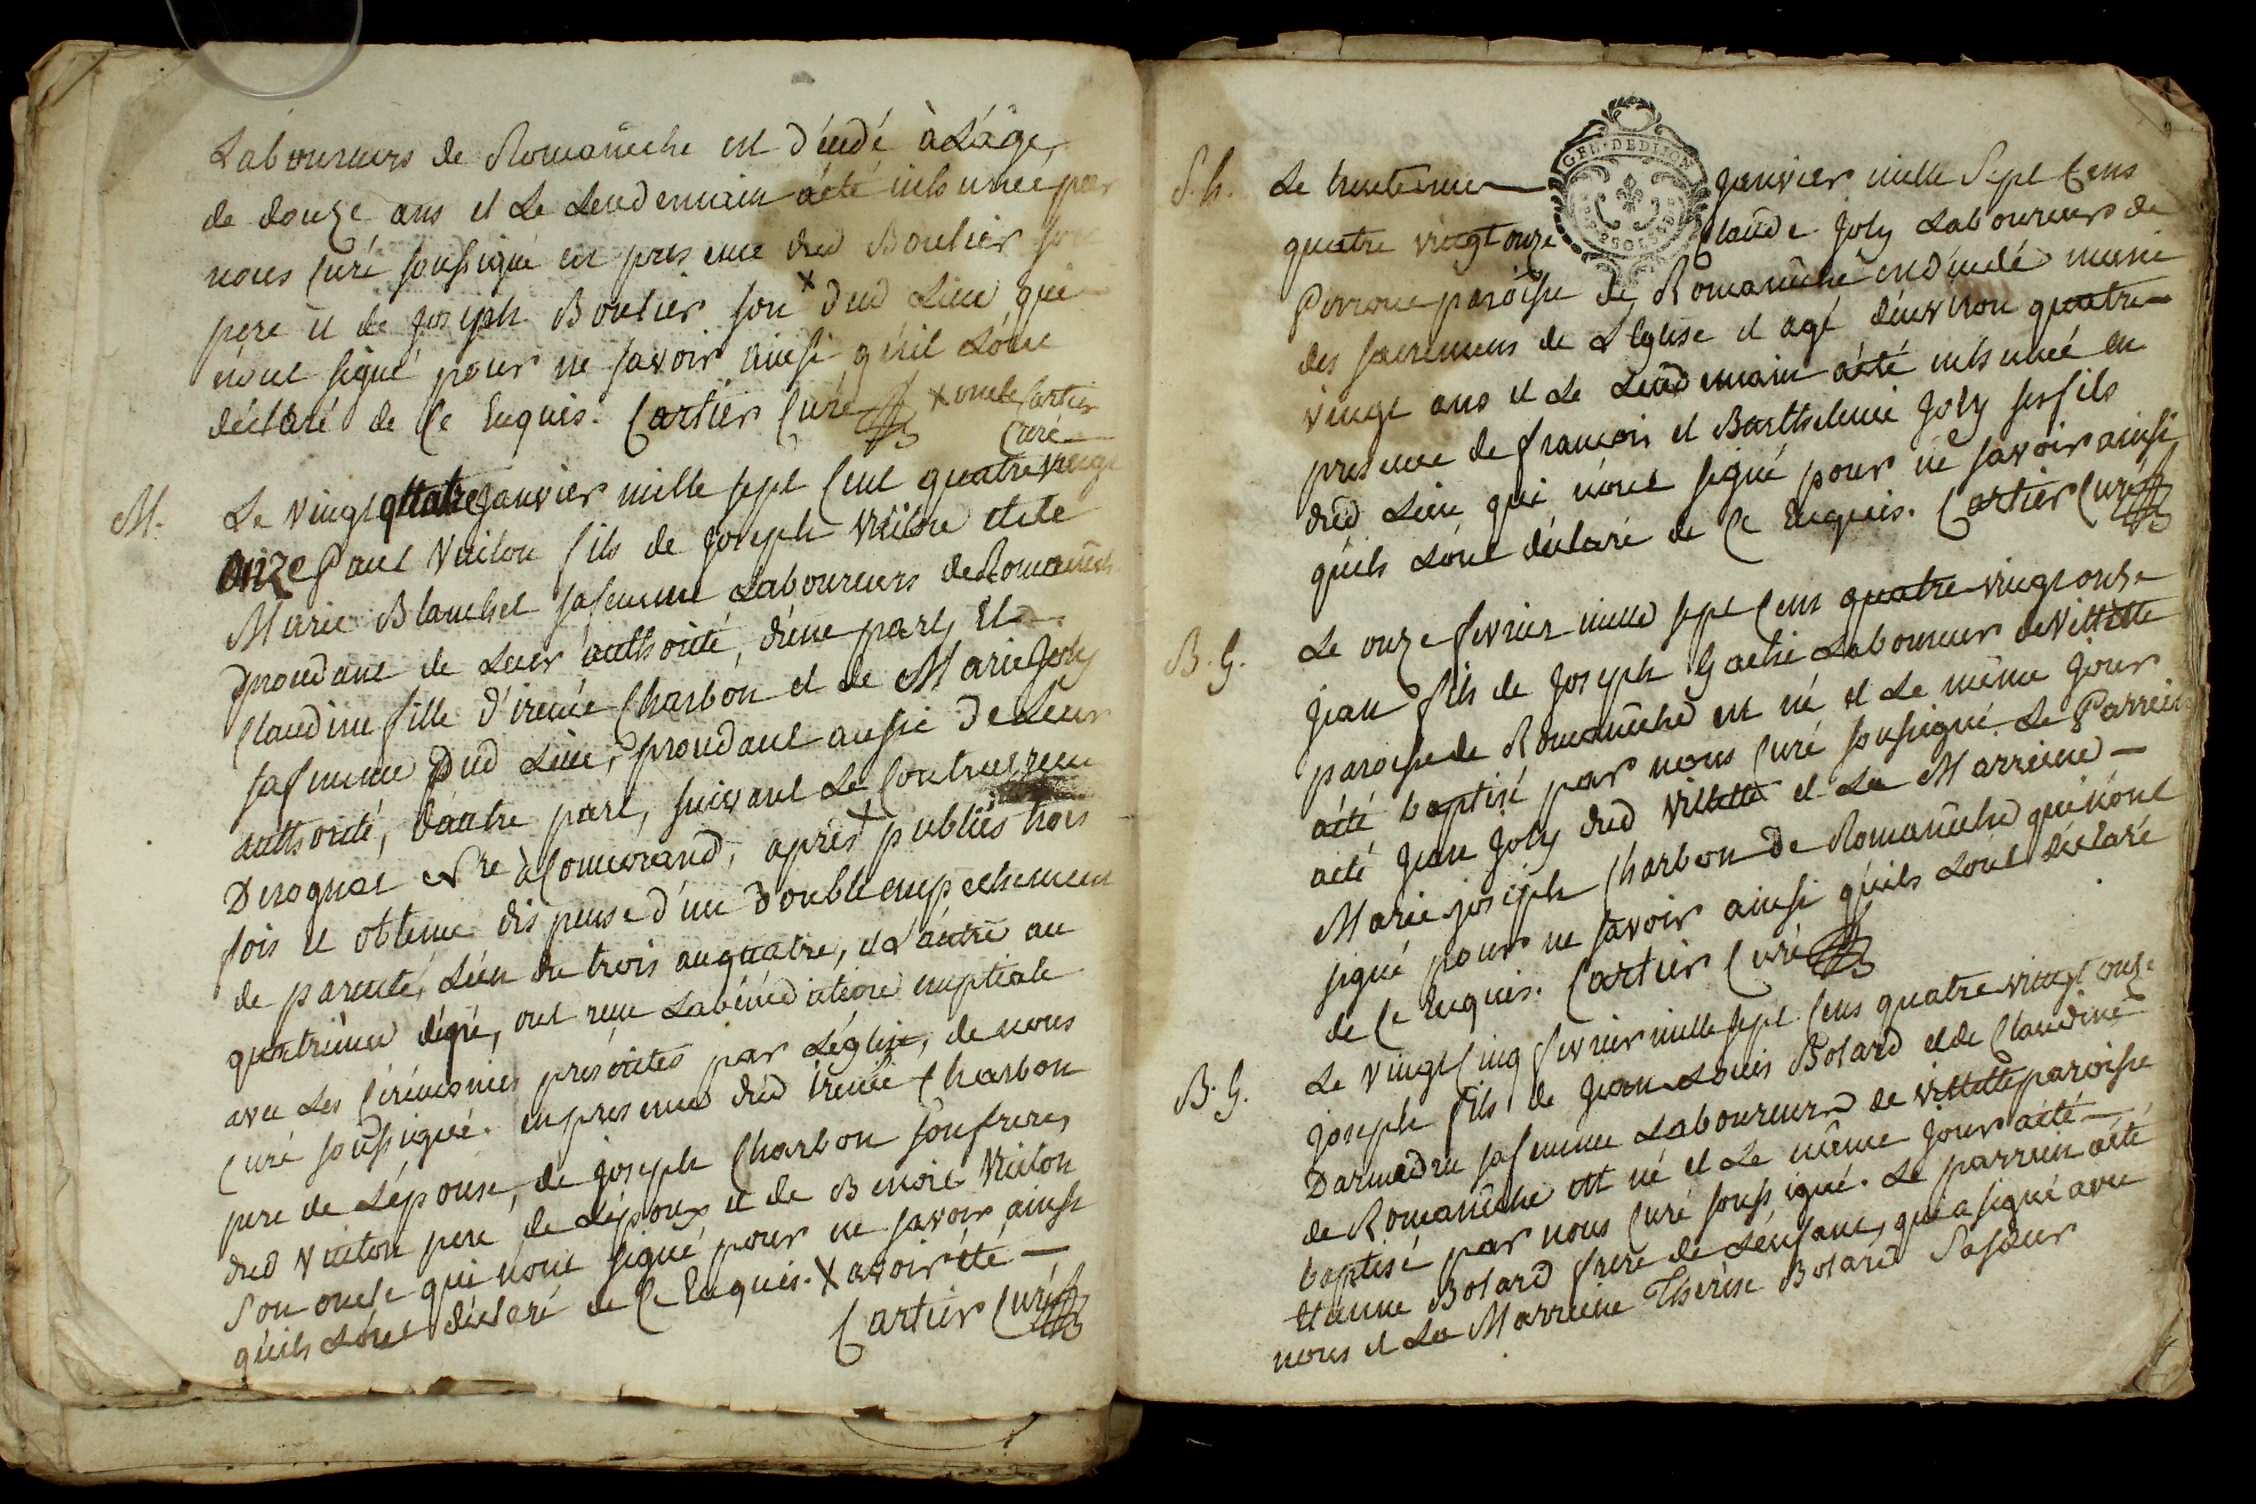 Laboureurs de Romanêche est décédé à L'âge,
de douze ans et Le Lendemain a été inhumée par
nous Curé soussigné en presence dud Boulier son
pere et de Joseph Boulier son x dud Lieu qui
n'ont signé pour ne savoir ainsi qu'il L'ont
déclaré de Ce Enquis. Cartier Curé x oncle Cartier
Curé
M. Le vingt quatre Janvier mille sept Cent quatre vingt
onze Paul Vuiton fils de Joseph Vuiton et de
Marie Blanchet sa femme Laboureurs de Romanêche
procédant de Leur authorité, d'une part, Et
Claudine fille d'irenée Charbon et de Marie Joly
sa femme Dud Lieu, procédant aussi de Leur
authorité, d'autre part, suivant Le Contract reçu
Derognat Nre à Converand, après x publiés trois
fois et obtenu dispense d'un double empechement
de parenté, L'un du trois au quatre, et L'autre au
quatrième dégré, ont reçu La bénédiction nuptiale
avec Les Cérémonies prescrites par L'église, de nous
Curé soussigné. en presence dud irenée Charbon
pere de L'épouse, de Joseph Charbon son frere,
dud Vuiton pere de L'époux et de Benoit Vuiton
son oncle qui n'ont signé pour ne savoir ainsi
qu'ils L'ont déclaré de Ce Enquis. x avoir été
Cartier Curé
GEN. DE DIJON
S. h. Le trente un Janvier mille Sept Cens
quatre vingt onze Claude Joly Laboureurs de
paroisse de Romanêche est décédé muni
des sacremens de L'Eglise et agé d'environ quatre
vingt ans et Le Lendemain a été inhumé en
presence de françois et Barthelemi Joly ses fils
dud Lieu qui n'ont signé pour ne savoir ainsi
qu'ils L'ont déclaré de Ce Enquis. Cartier Curé
B. G. Le onze fevrier mille sept Cens quatre vingt onze
Jean fils de Joseph Gache Laboureur de Villette
paroisse de Romanêche est né et Le même Jour
a été baptisé par nous Curé soussigné. Le Parrein
a été Jean Joly dud Villette et La Marreine
Marie Joseph Charbon de Romanêche qui n'ont
signé pour ne savoir ainsi qu'ils L'ont déclaré
de Ce Enquis. Cartier Curé
B. G. Le vingt Cinq fevrier mille sept Cens quatre vingt onze
Joseph fils de Jean Louis Botard et de Claudine
Darmedru sa femme Laboureurs de villette paroisse
de Romanêche est né et Le même Jour a été
baptisé par nous Curé soussigné. Le parrein a été
Etienne Botard frere de L'enfant, qui a signé avec
nous et La Marreine Thérèse Botard Sa soeur